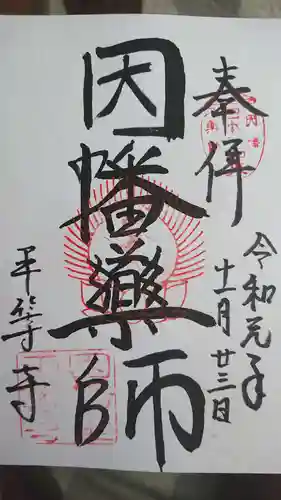 奉拝
令和元年
十一月廿三日
因幡薬師
平等寺